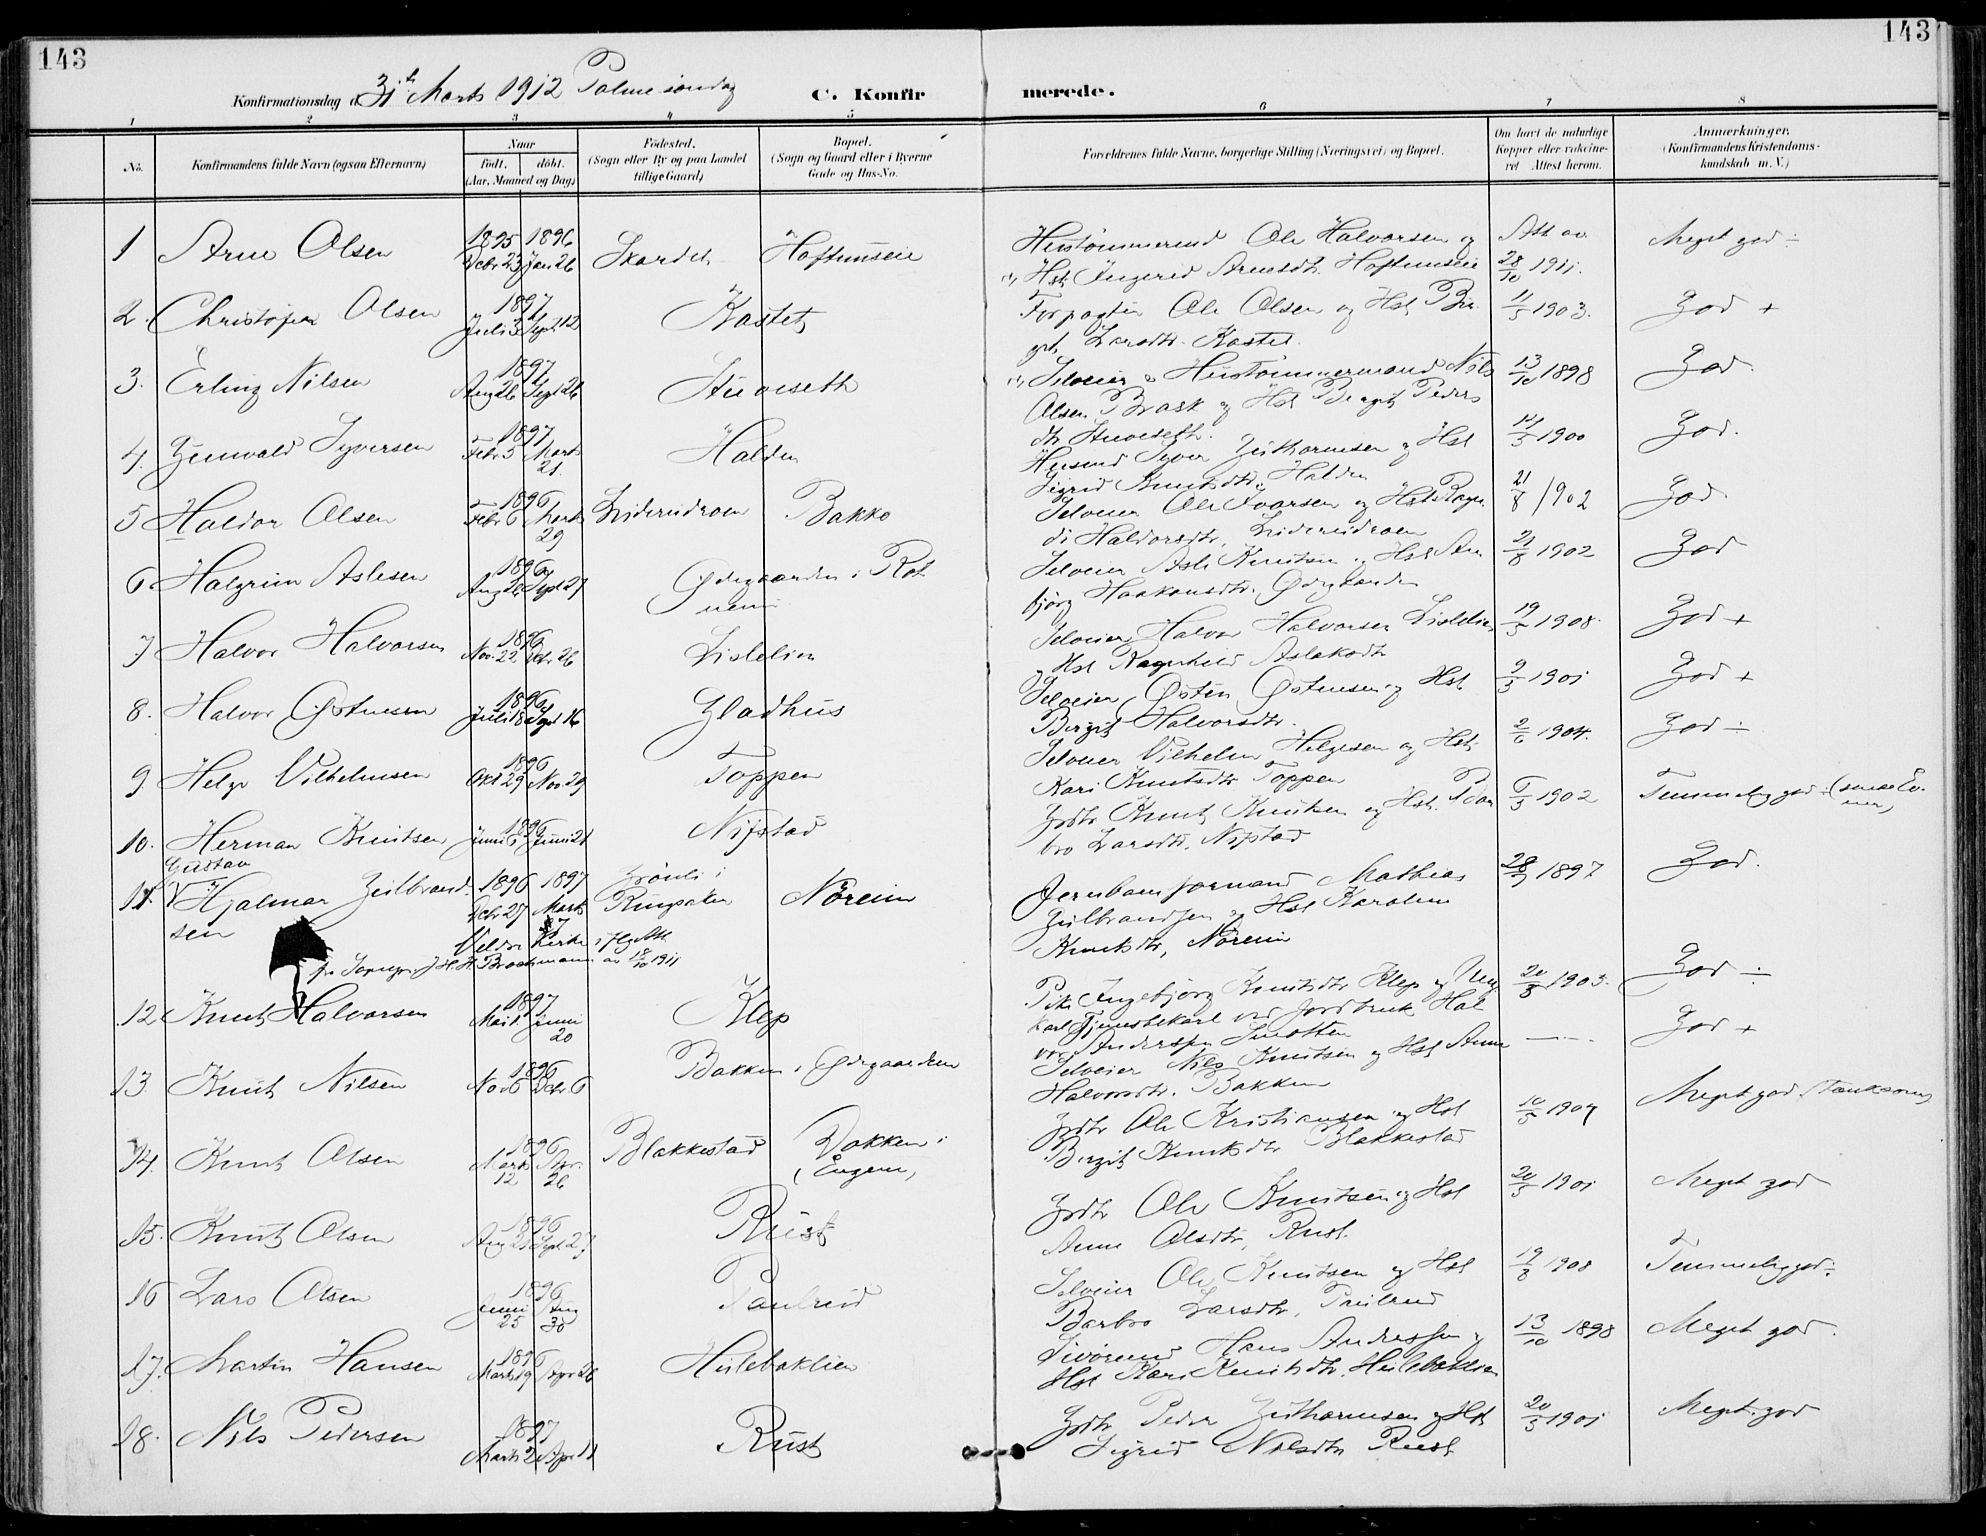 143
143
Konfirmationsdag d. 31te Marts 1912 Palmesøndag
C. Konfirmerede.
1 2 3 4 5 6 7 8
No. Konfirmandens fulde Navn (ogsaa Efternavn) Naar Født. døbt. (Aar, Maaned og Dag) Fødested. (Sogn eller By og paa Landet tillige Gaard) Bopæl. (Sogn og Gaard eller i Byerne Gade og Hus-No. Forældrenes fulde Navne, borgerlige Stilling (Næringsvei) og Bopæl. Om havt de naturlige Kopper eller vaccineret Attest herom. Anmærkninger. (Konfirmandens Kristendomskundskab m. V.)
1 Arne Olsen 1895 Decbr 23 1896 Jan 26 Skardet Haftunseie
Hustømmermd Ole Halvorsen og
Hst Ingerid Arnesdtr Haftunseie
Att av 28/10 1911. Meget god ÷
2. Christofer Olsen 1897 Juli 3 Sept 12 Kastet
Forpagter Ole Olsen og Hst Bir
git Larsdtr. Kastet.
11/5 1903. God +
3. Erling Nilsen 1897 Aug 26 Sept 26 Stuveseth
Selveier og Hustømmermand Nils
Olsen Brask og Hst Bergit Peders
dtr Stuveseth.
13/10 1898 God.
4. Gunvald Syversen 1897 Febr 5 Marts 21. Halden
Husmd Syver Guthormsen og Hst
Sigrid Knutsdtr. Halden
14/5 1900 God.
5 Haldor Olsen 1896 Febr 6 Marts 29 Liderudroen Bakko
Selveier Ole Ivarsen og Hst Ragn
di Haldorsdtr, Liderudroen
21/8 1902 God
6 Halgrim Aslesen 1896 Aug 26 Sept 27 Ødegaarden i Rot
nemi
Selveier Asle Knutsen og Hst An
bjørg Haakonsdtr. Ødegaarden
21/8 1902 God
7 Halvor Halvorsen 1896 Nov. 22 Dcbr 26 Lislelien
Selveier Halvor Halvorsen Lislelien
og Hst Ragnhild Aslaksdtr
19/5 1908. God +
8. Halvor Østensen 1896 Juli 18 Sept 16 Gladhus
Selveier Østen Østensen og Hst
Birgit Halvorsdtr.
9/5 1901 God +
9 Helge Vilhelmsen 1896 Okt 29 Nov. 29 Toppen
Selveier Vilhelm Helgesen og Hst.
Kari Knutsdtr Toppen
2/6 1904. God ÷
10. Herman Knutsen 1896 Juni 6 Juni 21 Nystad
Grdbr Knut Knutsen og Hst. Bar
bro Larsdtr. Nystad
6/5 1902 Temmelig god
11. Gustav
Hjalmar Gulbrand
sen 1896 Dcbr 27 1897 Marts Grønli i
Ringsaker Noreim
Veldre Kirke i flg Att
fra Sogngpr. J. H. H. Brochmann av 18/10 1911
Jernbaneformand Mathias
Gulbrandsen og Hst Karoline
Knutsdtr, Noreim
28/9 1897 God.
12 Knut Halvorsen 1897 Mai 1. Juni 20 Klep
Pike Ingebjørg Knutsdtr Klep og Ung
karl Tjenestekarl ved Jordbruk Hal
vor Anderssen Snotten
20/8 1905. God ÷
13 Knut Nilsen 1896 Nov 6 Dcbr 6 Bakken i Ødegaarden
Selveier Nils Knutsen og Hst Anne
Halvorsdtr. Bakken
God +
14. Knut Olsen 1896 Marts 12 Apr. 26 Blakkestad Dokken i
(Engene)
Grdbr Ole Kristiansen og Hst
Birgit Knutsdtr Blakkestad
10/5 1907 Meget god
15. Knut Olsen 1896 Aug 21 Sept 27 Rust
Grdbr Ole Knutsen og Hst
Anne Olsdtr, Rust.
20/5 1901 Meget god
16 Lars Olsen 1896 Juni 25 Aug 30 Paulrud
Selveier Ole Knutsen og Hst
Barbro Larsdtr, Paulrud
19/8 1908 Temmelig god ÷
17. Martin Hansen 1896 Marts 19 Apr 26 Heilebaklien
Hans Anderssen og
Hst Kari Knutsdtr. Heilebaklien
13/10 1898 Meget god.
18. Nils Pedersen 1897 Marts 2 Apr 11 Rust
Grdbr Peder Guthormsen og Hst
Sigrid Nilsdtr Rust
20/5 1901 Meget god